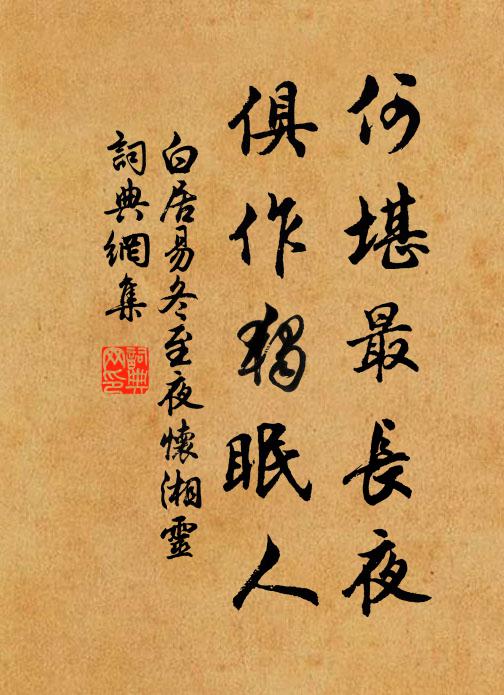 何堪最長夜
俱作獨眠人
白居易冬至夜懷湘靈
詞典網集
詞典網印